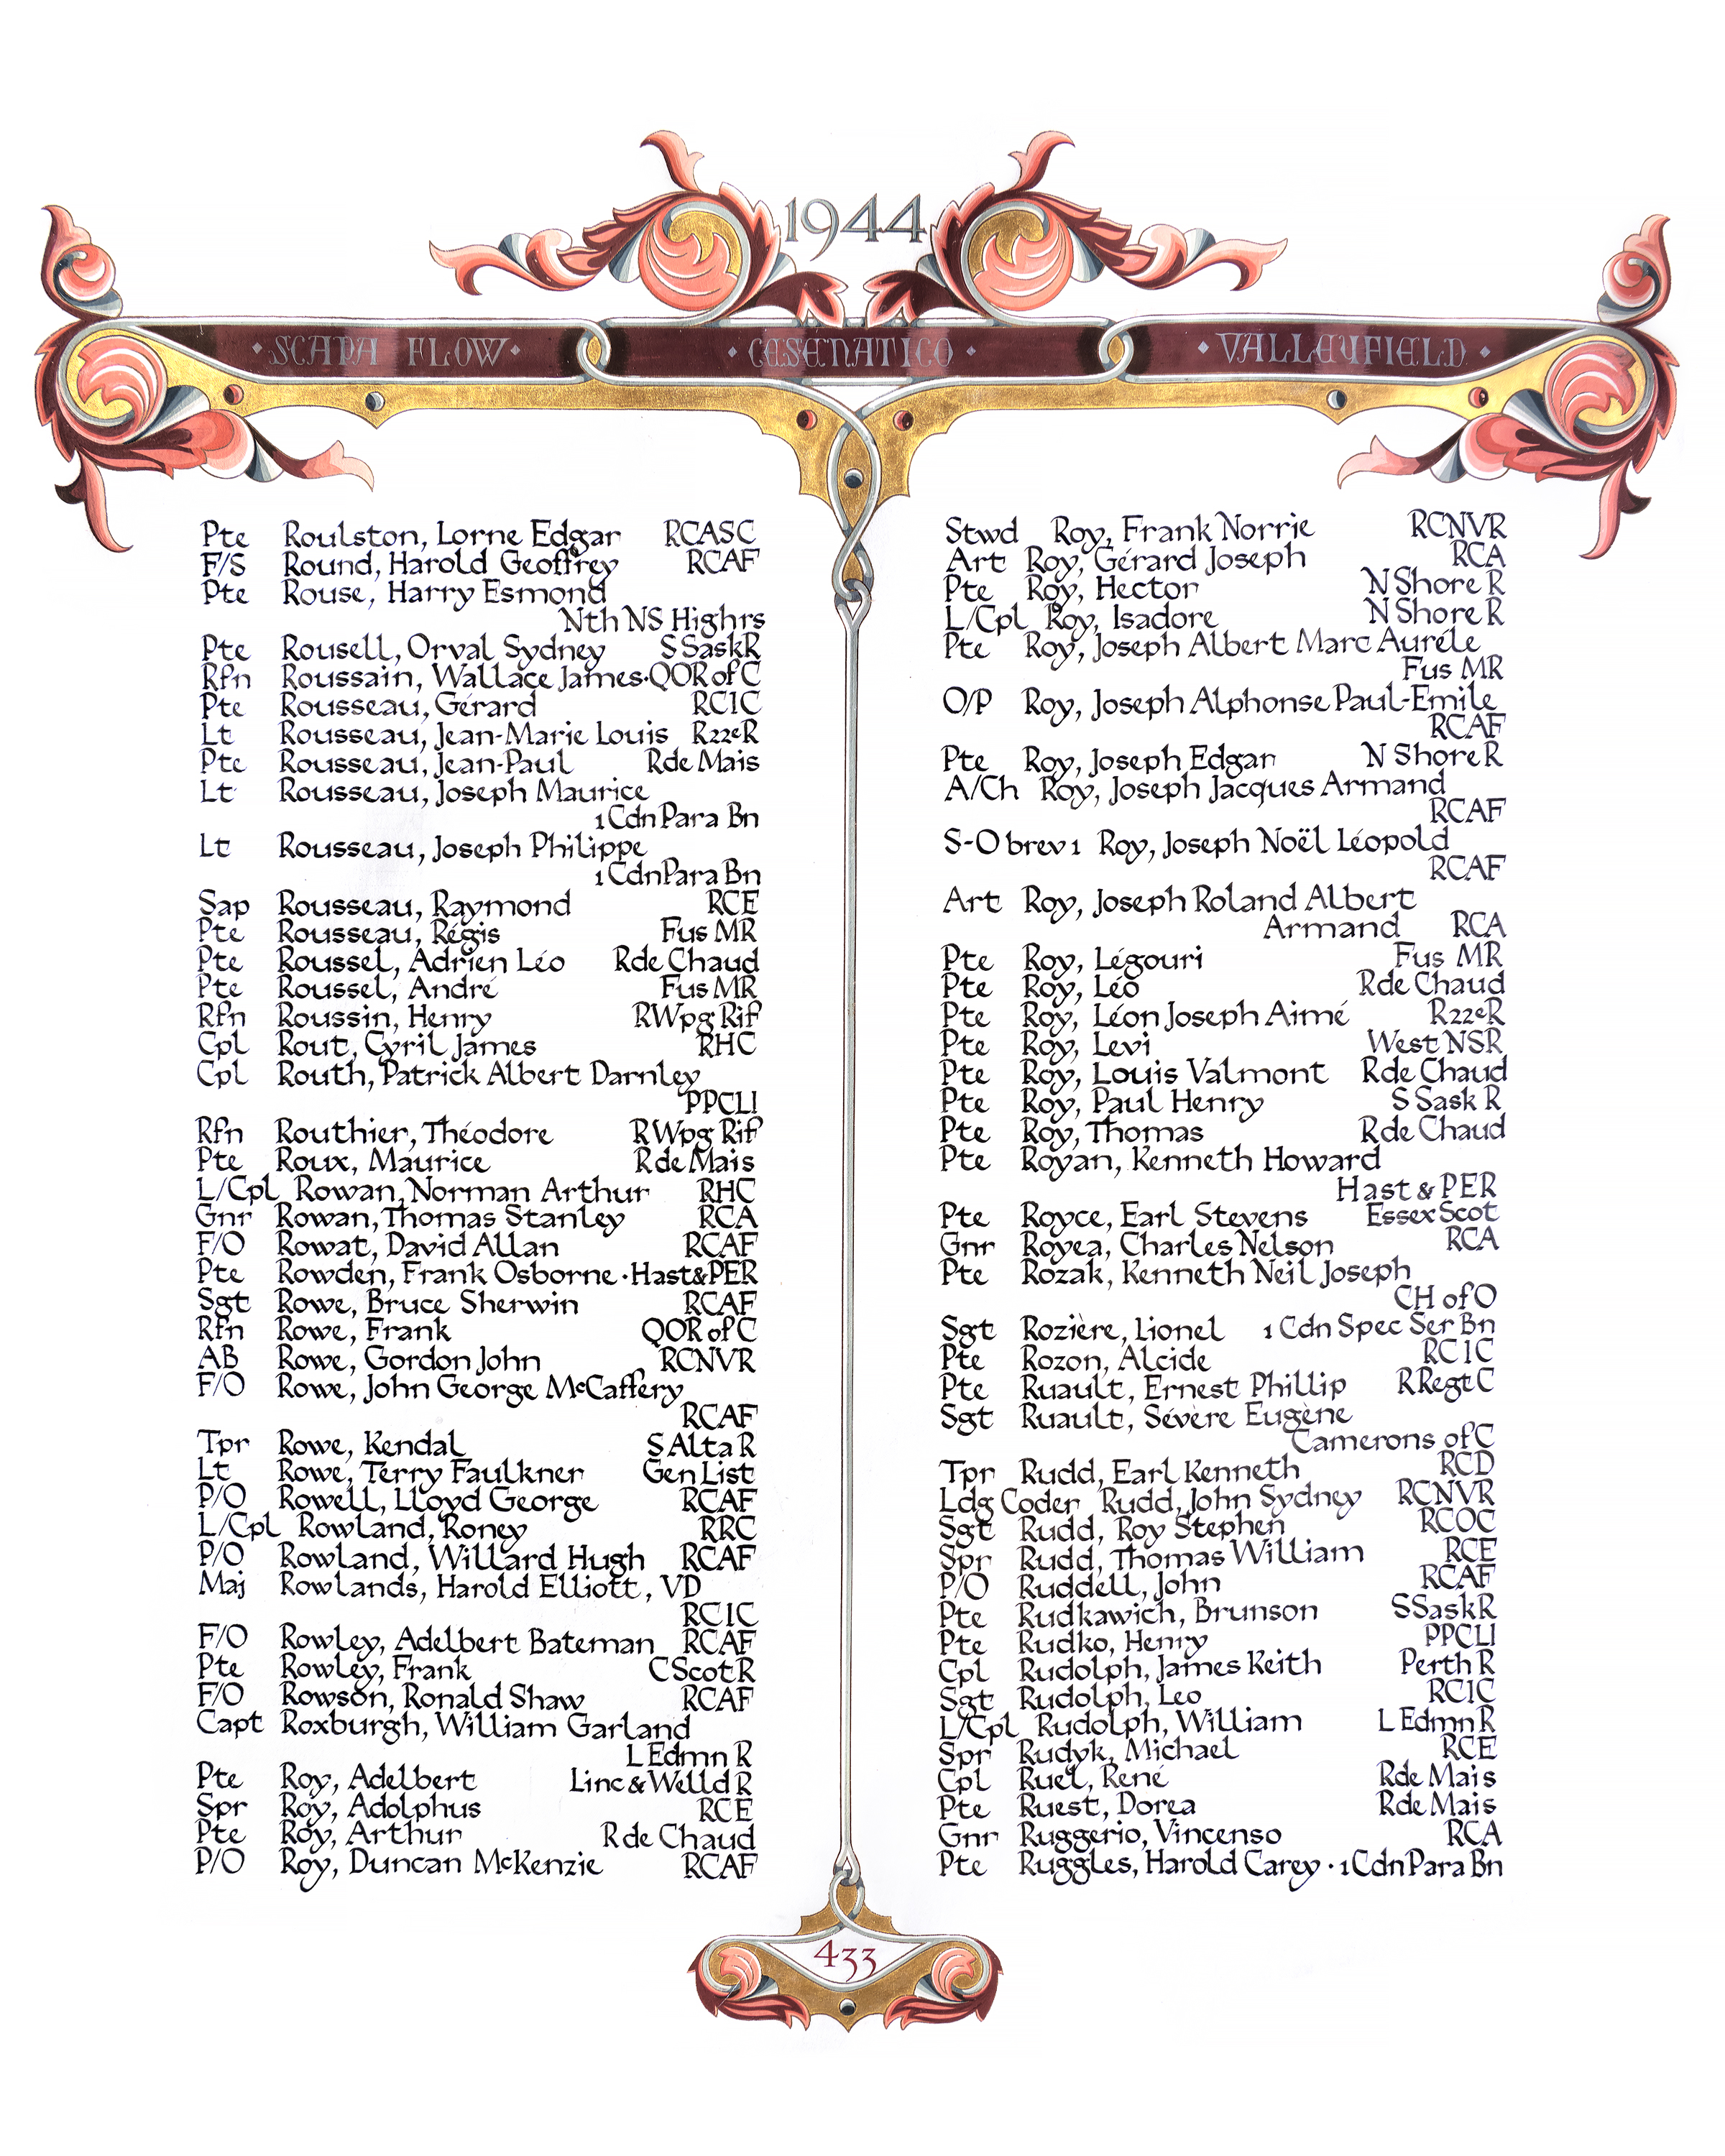 1944
· SCAPA FLOW ·
· CESENATICO ·
· VALLEYFIELD ·
Pte Roulston, Lorne Edgar RCASC
F/S Round, Harold Geoffrey RCAF
Pte Rouse, Harry Esmond
Nth NS Highrs
Pte Rousell, Orval Sydney S Sask R
Rfn Roussain, Wallace James · QOR of C
Pte Rousseau, Gérard RCIC
Lt Rousseau, Jean-Marie Louis R22eR
Pte Rousseau, Jean-Paul R de Mais
Lt Rousseau, Joseph Maurice
1 Cdn Para Bn
Lt Rousseau, Joseph Philippe
1 Cdn Para Bn
Sap Rousseau, Raymond RCE
Pte Rousseau, Régis Fus MR
Pte Roussel, Adrien Léo R de Chaud
Pte Roussel, André Fus MR
Rfn Roussin, Henry R Wpg Rif
Cpl Rout, Cyril James RHC
Cpl Routh, Patrick Albert Darnley
PPCLI
Rfn Routhier, Théodore R Wpg Rif
Pte Roux, Maurice R de Mais
L/Cpl Rowan, Norman Arthur RHC
Gnr Rowan, Thomas Stanley RCA
F/O Rowat, David Allan RCAF
Pte Rowden, Frank Osborne · Hast & PER
Sgt Rowe, Bruce Sherwin RCAF
Rfn Rowe, Frank QOR of C
AB Rowe, Gordon John RCNVR
F/O Rowe, John George McCaffery
RCAF
Tpr Rowe, Kendal S Alta R
Lt Rowe, Terry Faulkner Gen List
P/O Rowell, Lloyd George RCAF
L/Cpl Rowland, Roney RRC
P/O Rowland, Willard Hugh RCAF
Maj Rowlands, Harold Elliott, VD
RCIC
F/O Rowley, Adelbert Bateman RCAF
Pte Rowley, Frank C Scot R
F/O Rowson, Ronald Shaw RCAF
Capt Roxburgh, William Garland
L Edmn R
Pte Roy, Adelbert Linc & Welld R
Spr Roy, Adolphus RCE
Pte Roy, Arthur R de Chaud
P/O Roy, Duncan McKenzie RCAF
Stwd Roy, Frank Norrie RCNVR
Art Roy, Gérard Joseph RCA
Pte Roy, Hector N Shore R
L/Cpl Roy, Isadore N Shore R
Pte Roy, Joseph Albert Marc Aurèle
Fus MR
O/P Roy, Joseph Alphonse Paul-Emile
RCAF
Pte Roy, Joseph Edgar N Shore R
A/Ch Roy, Joseph Jacques Armand
RCAF
S-O brev 1 Roy, Joseph Noël Léopold
RCAF
Art Roy, Joseph Roland Albert
Armand RCA
Pte Roy, Légouri Fus MR
Pte Roy, Léo R de Chaud
Pte Roy, Léon Joseph Aimé R22eR
Pte Roy, Levi West NSR
Pte Roy, Louis Valmont R de Chaud
Pte Roy, Paul Henry S Sask R
Pte Roy, Thomas R de Chaud
Pte Royan, Kenneth Howard
Hast & PER
Pte Royce, Earl Stevens Essex Scot
Gnr Royea, Charles Nelson RCA
Pte Rozak, Kenneth Neil Joseph
CH of O
Sgt Rozière, Lionel 1 Cdn Spec Ser Bn
Pte Rozon, Alcide RCIC
Pte Ruault, Ernest Phillip R Regt C
Sgt Ruault, Sévère Eugène
Camerons of C
Tpr Rudd, Earl Kenneth RCD
Ldg Coder Rudd, John Sydney RCNVR
Sgt Rudd, Roy Stephen RCOC
Spr Rudd, Thomas William RCE
P/O Ruddell, John RCAF
Pte Rudkawich, Brunson S Sask R
Pte Rudko, Henry PPCLI
Cpl Rudolph, James Keith Perth R
Sgt Rudolph, Leo RCIC
L/Cpl Rudolph, William L Edmn R
Spr Rudyk, Michael RCE
Cpl Ruel, René R de Mais
Pte Ruest, Dorea R de Mais
Gnr Ruggerio, Vincenso RCA
Pte Ruggles, Harold Carey · 1 Cdn Para Bn
433